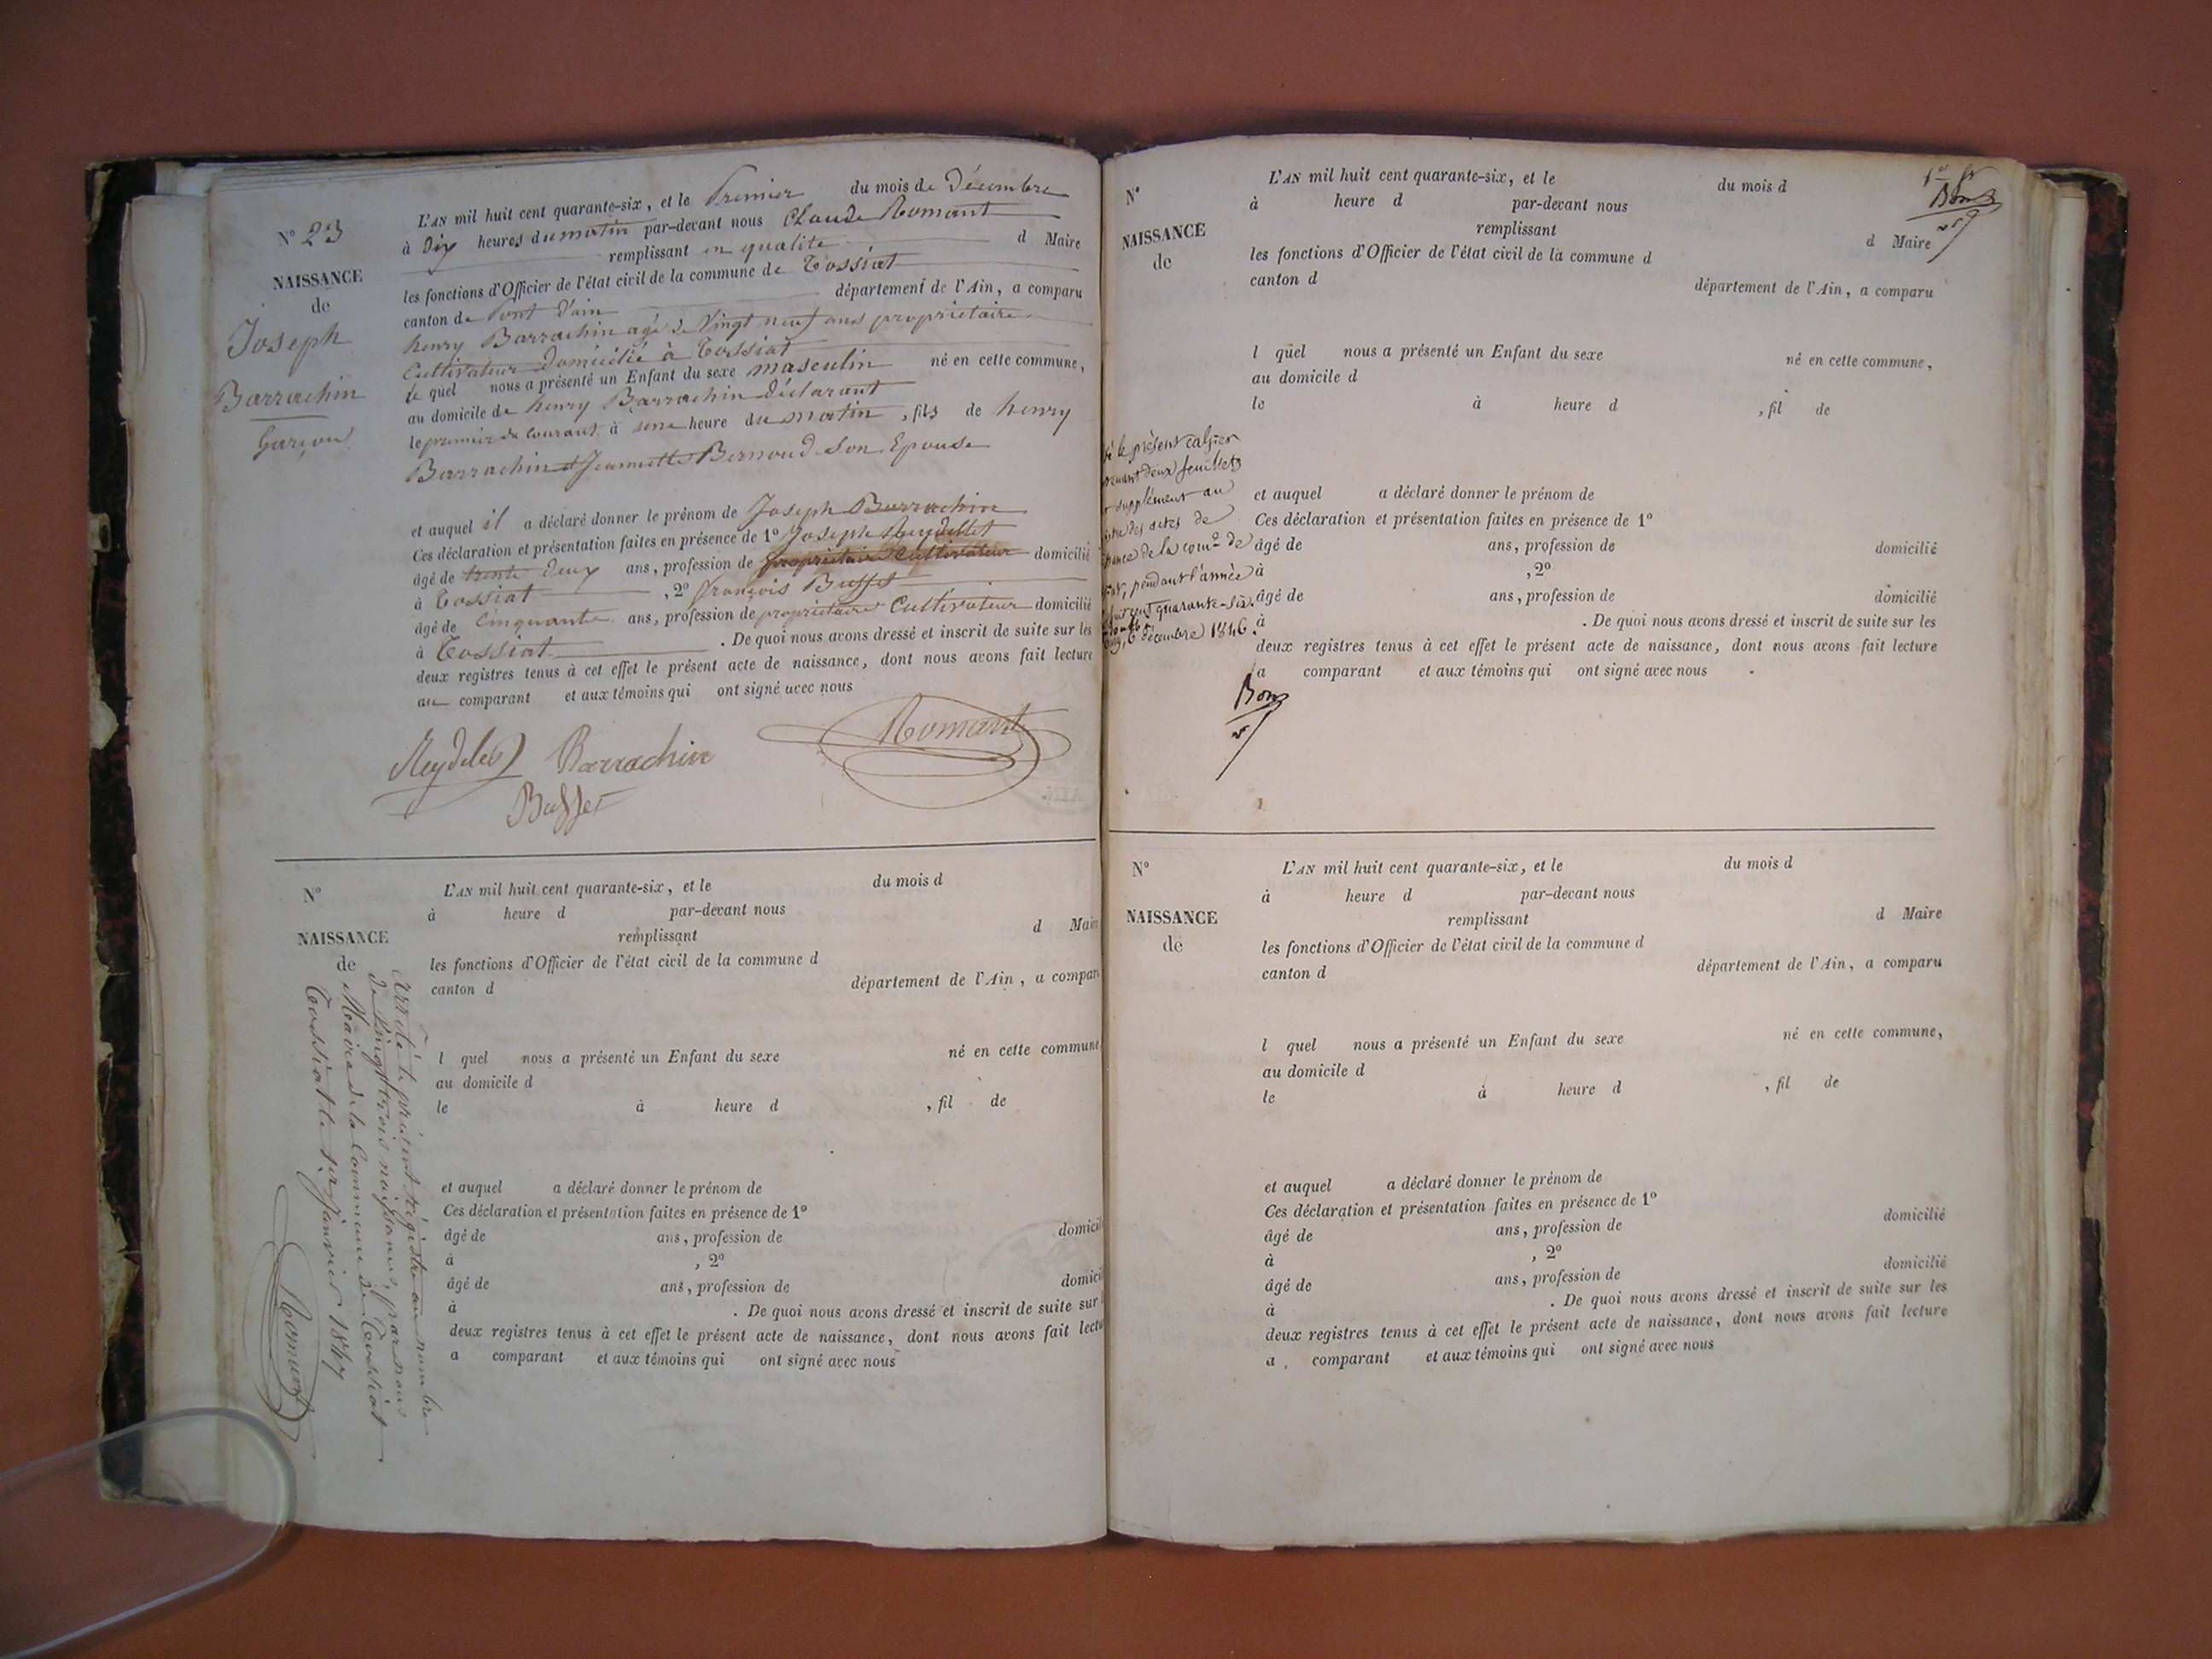 N° 23
NAISSANCE
de
Joseph
Barrachin
Garçon
L'AN mil huit cent quarante-six, et le Premier du mois de Décembre
à Dix heures du matin par-devant nous Claude Romant
remplissant en qualité d Maire
les fonctions d'Officier de l'état civil de la commune de Tossiat
canton de Pont d'ain département de l'Ain, a comparu
henry Barrachin agé de Vingt neuf ans propriétaire
Cultivateur domicilié à Tossiat
le quel nous a présenté un Enfant du sexe masculin né en cette commune,
au domicile de henry Barrachin déclarant
le premier du courant à une heure du matin, fils de henry
Barrachin et Jeannette Bernoud Son Epouse
et auquel il a déclaré donner le prénom de Joseph Barrachin
Ces déclaration et présentation faites en présence de 1° Joseph Reydellet
âgé de trente deux ans, profession de propriétaire Cultivateur domicilié
à Tossiat, 2° françois Buffet
âgé de Cinquante ans, profession de propriétaire Cultivateur domicilié
à Tossiat. De quoi nous avons dressé et inscrit de suite sur les
deux registres tenus à cet effet le présent acte de naissance, dont nous avons fait lecture
au comparant et aux témoins qui ont signé avec nous
Reydelet Barrachin Romant
Buffet
N°
NAISSANCE
de
L'AN mil huit cent quarante-six, et le du mois d
à heure d par-devant nous
remplissant d Mair
les fonctions d'Officier de l'état civil de la commune d
canton d département de l'Ain, a compar
l quel nous a présenté un Enfant du sexe né en cette commune
au domicile d
le à heure d , fil de
et auquel a déclaré donner le prénom de
Ces déclaration et présentation faites en présence de 1°
âgé de ans, profession de domicil
à , 2°
âgé de ans, profession de domici
à . De quoi nous avons dressé et inscrit de suite sur
deux registres tenus à cet effet le présent acte de naissance, dont nous avons fait lectu
a comparant et aux témoins qui ont signé avec nous
Arrêté le présent régistre au nombre
de Vingt trois naissances, par nous
Maire de la Commune de Tossiat
Tossiat le 1er Janvier 1847
Romant
1er ft
Bon
N°
NAISSANCE
de
L'AN mil huit cent quarante-six, et le du mois d
à heure d par-devant nous
remplissant d Maire
les fonctions d'Officier de l'état civil de la commune d
canton d département de l'Ain, a comparu
l quel nous a présenté un Enfant du sexe né en cette commune,
au domicile d
le à heure d , fil de
le présent cahier
deux feuillets
supplément au
des actes de
de la comne de
pendant l'année
cent quarante-six.
6 décembre 1846.
Bon
et auquel a déclaré donner le prénom de
Ces déclaration et présentation faites en présence de 1°
âgé de ans, profession de domicilié
à , 2°
âgé de ans, profession de domicilié
à . De quoi nous avons dressé et inscrit de suite sur les
deux registres tenus à cet effet le présent acte de naissance, dont nous avons fait lecture
a comparant et aux témoins qui ont signé avec nous
N°
NAISSANCE
de
L'AN mil huit cent quarante-six, et le du mois d
à heure d par-devant nous
remplissant d Maire
les fonctions d'Officier de l'état civil de la commune d
canton d département de l'Ain, a comparu
l quel nous a présenté un Enfant du sexe né en cette commune,
au domicile d
le à heure d , fil de
et auquel a déclaré donner le prénom de
Ces déclaration et présentation faites en présence de 1°
âgé de ans, profession de domicilié
à , 2°
âgé de ans, profession de domicilié
à . De quoi nous avons dressé et inscrit de suite sur les
deux registres tenus à cet effet le présent acte de naissance, dont nous avons fait lecture
a comparant et aux témoins qui ont signé avec nous